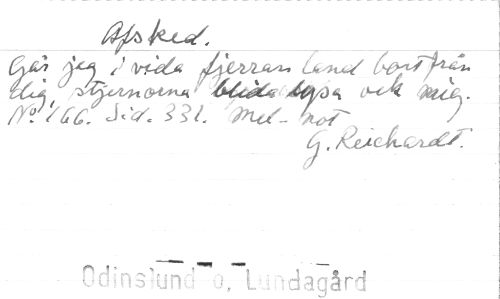 Afsked.
Går jag i vida fjerran land bort från
dig, stjernorna blida lysa och mig.
No. 166. Sid. 331. Mel- not
G. Reichardt.
Odinslund o, Lundagård